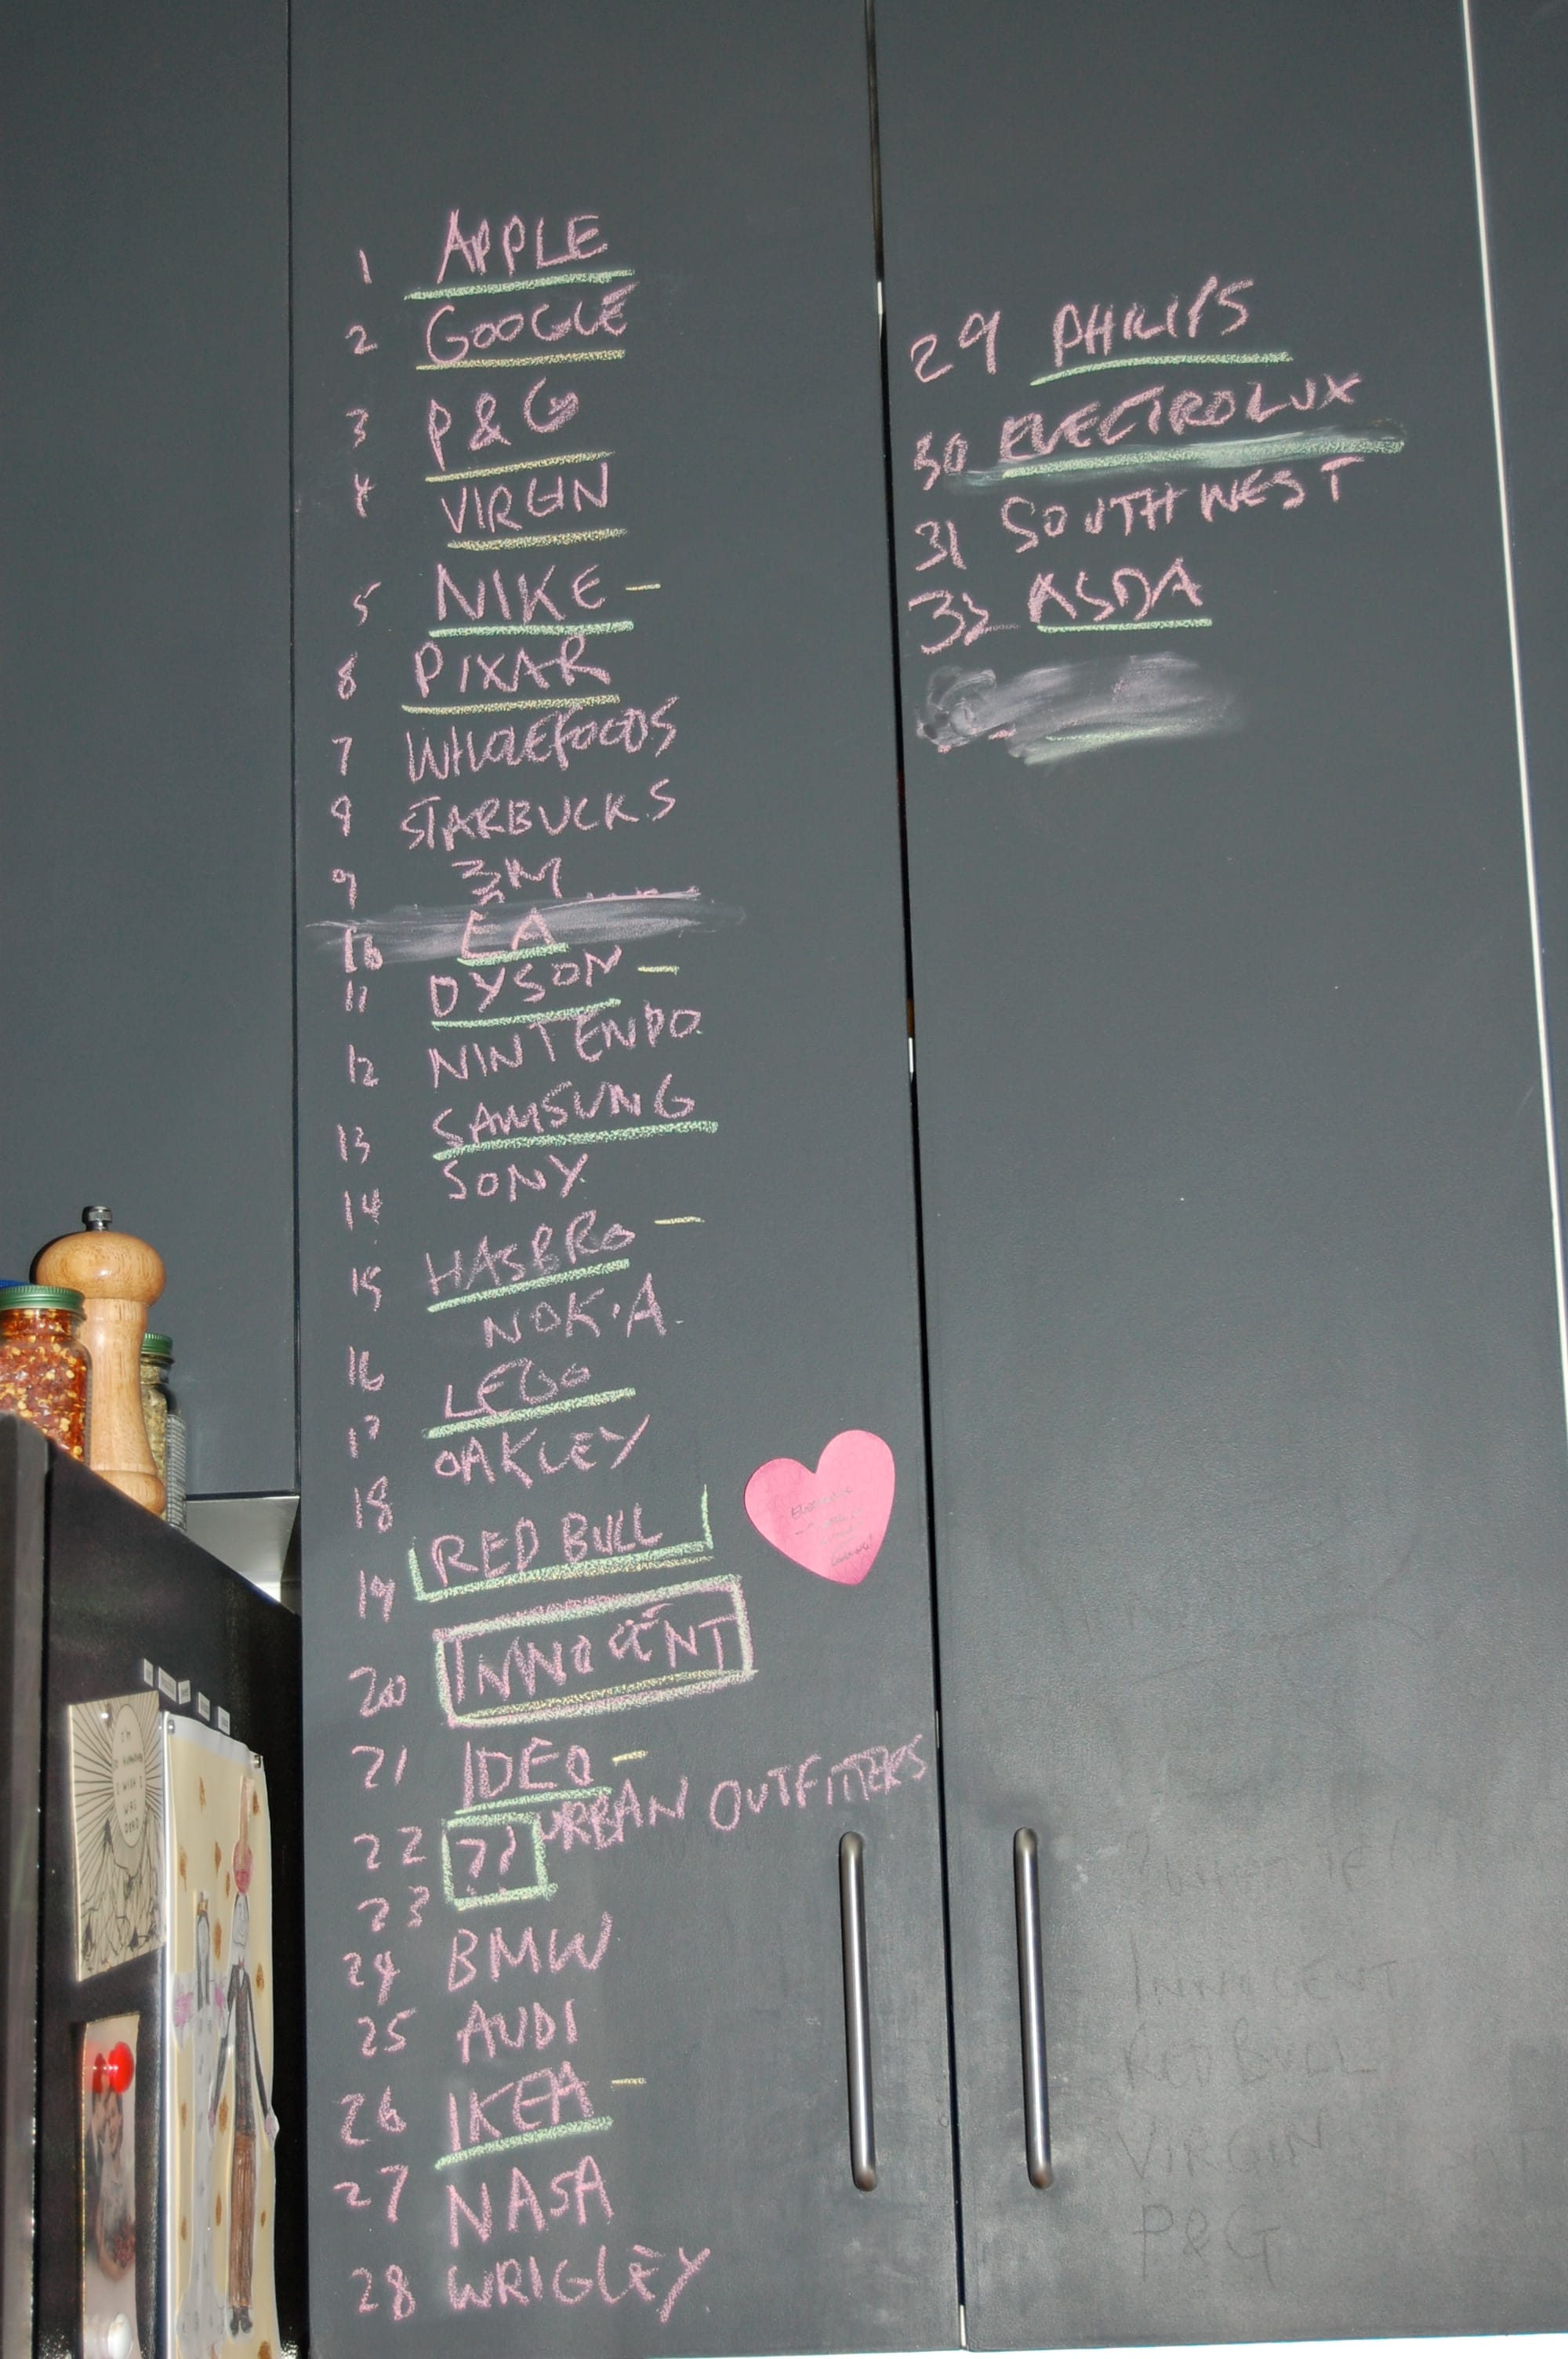 1 APPLE
2 GOOGLE
3 P&G
4 VIRGIN
5 NIKE -
6 PIXAR
7 WHOLEFOODS
8 STARBUCKS
9 3M
10 EA
11 DYSON -
12 NINTENDO
13 SAMSUNG
14 SONY
15 HASBRO -
NOKIA
16 LEGO
17 OAKLEY
18
19 RED BULL
20 INNOCENT
21 IDEO -
22 ?? URBAN OUTFITTERS
23
24 BMW
25 AUDI
26 IKEA -
27 NASA
28 WRIGLEY
29 PHILIPS
30 ELECTROLUX
31 SOUTHWEST
32 ASDA
INNOCENT
RED BULL
VIRGIN
P&G
I'm
I WISH I
WAS
DEAD